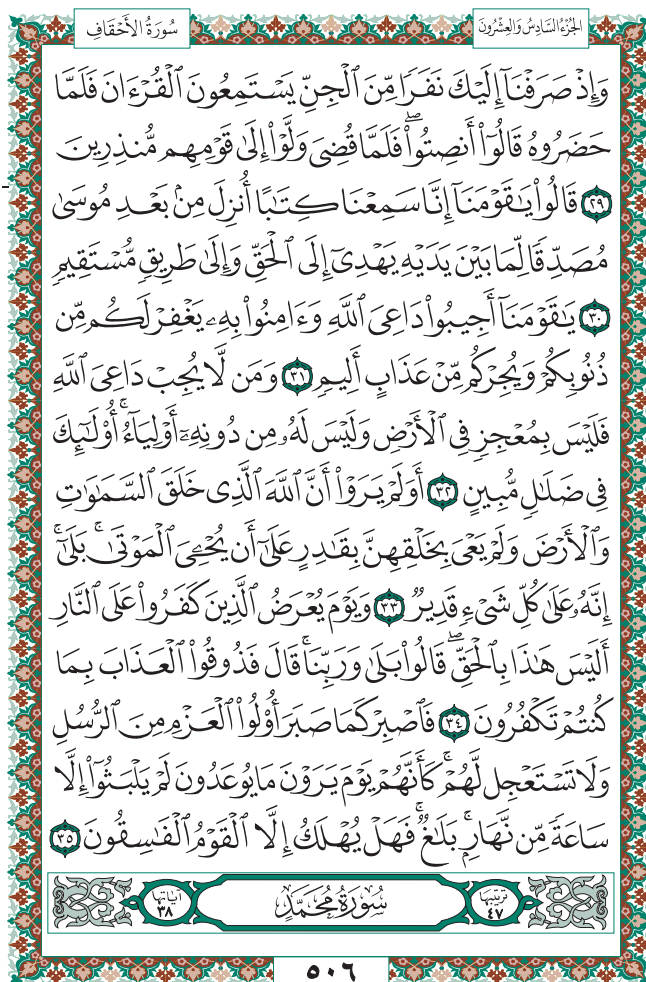 الجُزْءُ السَّادِسُ وَالعِشْرُونَ
سُورَةُ الأَحْقَافِ
وَإِذْ صَرَفْنَآ إِلَيْكَ نَفَرٗا مِّنَ ٱلْجِنِّ يَسْتَمِعُونَ ٱلْقُرْءَانَ فَلَمَّا
حَضَرُوهُ قَالُوٓاْ أَنصِتُواْۖ فَلَمَّا قُضِيَ وَلَّوْاْ إِلَىٰ قَوْمِهِم مُّنذِرِينَ
٢٩ قَالُواْ يَٰقَوْمَنَآ إِنَّا سَمِعْنَا كِتَٰبًا أُنزِلَ مِنۢ بَعْدِ مُوسَىٰ
مُصَدِّقٗا لِّمَا بَيْنَ يَدَيْهِ يَهْدِيٓ إِلَى ٱلْحَقِّ وَإِلَىٰ طَرِيقٖ مُّسْتَقِيمٖ
٣٠ يَٰقَوْمَنَآ أَجِيبُواْ دَاعِيَ ٱللَّهِ وَءَامِنُواْ بِهِۦ يَغْفِرْ لَكُم مِّن
ذُنُوبِكُمْ وَيُجِرْكُم مِّنْ عَذَابٍ أَلِيمٖ ٣١ وَمَن لَّا يُجِبْ دَاعِيَ ٱللَّهِ
فَلَيْسَ بِمُعْجِزٖ فِي ٱلْأَرْضِ وَلَيْسَ لَهُۥ مِن دُونِهِۦٓ أَوْلِيَآءُۚ أُوْلَٰٓئِكَ
فِي ضَلَٰلٖ مُّبِينٍ ٣٢ أَوَلَمْ يَرَوْاْ أَنَّ ٱللَّهَ ٱلَّذِي خَلَقَ ٱلسَّمَٰوَٰتِ
وَٱلْأَرْضَ وَلَمْ يَعْيَ بِخَلْقِهِنَّ بِقَٰدِرٍ عَلَىٰٓ أَن يُحْـِۧيَ ٱلْمَوْتَىٰۚ بَلَىٰٓۚ
إِنَّهُۥ عَلَىٰ كُلِّ شَيْءٖ قَدِيرٞ ٣٣ وَيَوْمَ يُعْرَضُ ٱلَّذِينَ كَفَرُواْ عَلَى ٱلنَّارِ
أَلَيْسَ هَٰذَا بِٱلْحَقِّۖ قَالُواْ بَلَىٰ وَرَبِّنَاۚ قَالَ فَذُوقُواْ ٱلْعَذَابَ بِمَا
كُنتُمْ تَكْفُرُونَ ٣٤ فَٱصْبِرْ كَمَا صَبَرَ أُوْلُواْ ٱلْعَزْمِ مِنَ ٱلرُّسُلِ
وَلَا تَسْتَعْجِل لَّهُمْۚ كَأَنَّهُمْ يَوْمَ يَرَوْنَ مَا يُوعَدُونَ لَمْ يَلْبَثُوٓاْ إِلَّا
سَاعَةٗ مِّن نَّهَارِۭۚ بَلَٰغٞۚ فَهَلْ يُهْلَكُ إِلَّا ٱلْقَوْمُ ٱلْفَٰسِقُونَ ٣٥
ترتيبها ٤٧ سُورَةُ مُحَمَّدٍ آياتها ٣٨
٥٠٦